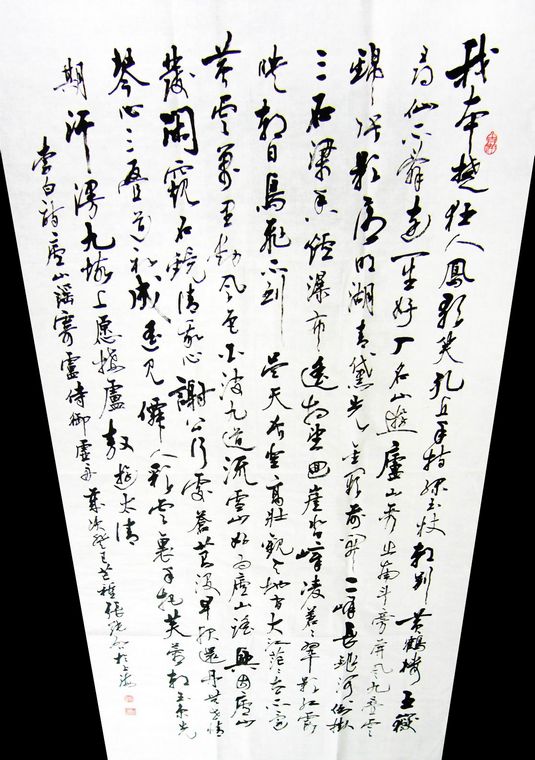 我本楚狂人鳳歌笑孔丘手持綠玉杖朝別黃鶴樓五嶽
尋仙不辭遠一生好入名山遊廬山秀出南斗旁屏風九疊雲
錦張影落明湖青黛光金闕前開二峰長銀河倒掛
三石梁香爐瀑布遙相望迴崖沓嶂凌蒼蒼翠影紅霞
映朝日鳥飛不到吳天長登高壯觀天地間大江茫茫去不還
黃雲萬里動風色白波九道流雪山好為廬山謠興因廬山
發閑窺石鏡清我心謝公行處蒼苔沒早服還丹無世情
琴心三疊道初成遙見僊人彩雲裏手把芙蓉朝玉京先
期汗漫九垓上愿接盧敖遊太清
李白詩廬山謠寄盧侍御虛舟 歲次癸巳 於上海